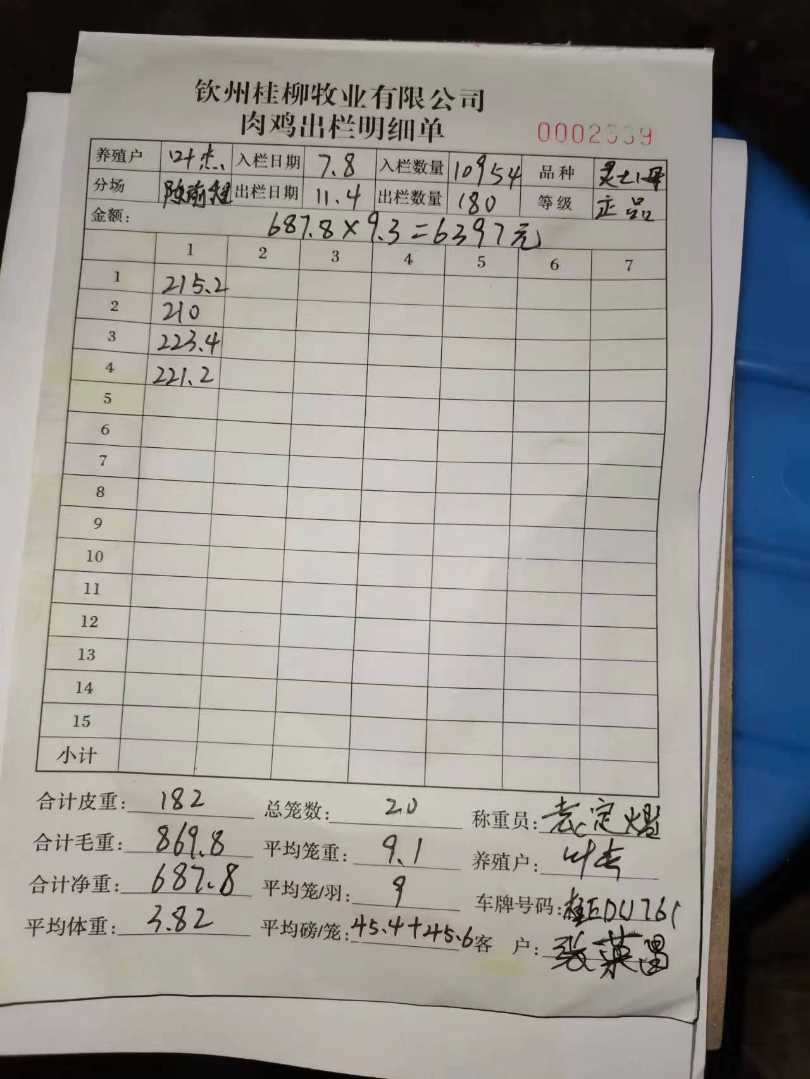 钦州桂柳牧业有限公司
肉鸡出栏明细单
0002539
养殖户 叶杰 入栏日期 7.8 入栏数量 10954 品种
分场 出栏日期 11.4 出栏数量 180 等级 正品
金额: 687.8×9.3=6397元
1 2 3 4 5 6 7
1 215.2
2 210
3 223.4
4 221.2
5
6
7
8
9
10
11
12
13
14
15
小计
合计皮重: 182 总笼数: 20 称重员:
合计毛重: 869.8 平均笼重: 9.1 养殖户: 叶杰
合计净重: 687.8 平均笼/羽: 9 车牌号码: 桂EDU761
平均体重: 3.82 平均磅/笼: 45.4+45.6 客 户: